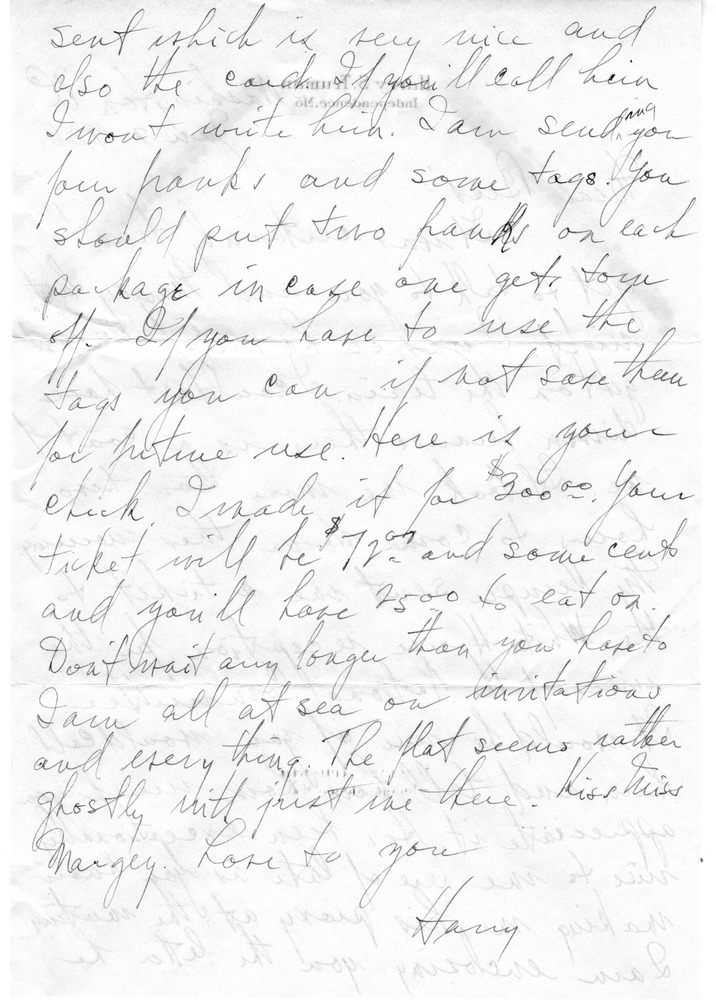 sent which is very nice and
also the card. If you'll call him
I won't write him. I am sending you
four franks and some tags. You
should put two franks on each
package in case one gets torn
off. If you have to use the
tags you can, if not save them
for future use. Here is your
check. I made it for $300.00. Your
ticket will be $72.00 and some cents
and you'll have 25.00 to eat on.
Don't wait any longer than you have to
I am all at sea on invitations
and every thing. The flat seems rather
ghostly with just me there. Kiss Miss
Margey. Love to you
Harry